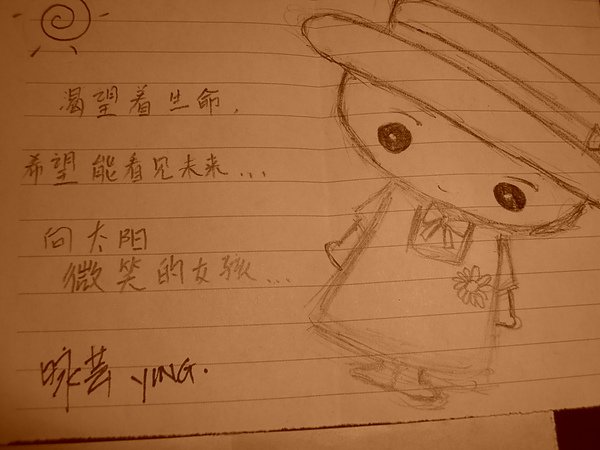 渴望着生命,
希望能看见未来...
向太阳
微笑的女孩...
YING.